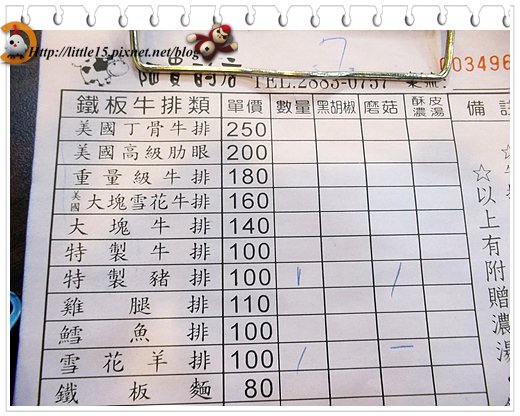 Http://little15.pixnet.net/blog
7
TEL.2883-0757
003496
鐵板牛排類 單價 數量 黑胡椒 磨菇 酥皮濃湯 備註
美國丁骨牛排 250
美國高級肋眼 200
重量級牛排 180
美國大塊雪花牛排 160
大塊牛排 140
特製牛排 100
特製豬排 100 1 /
雞腿排 110
鱈魚排 100
雪花羊排 100 / 一
鐵板麵 80
☆以上有附贈濃湯